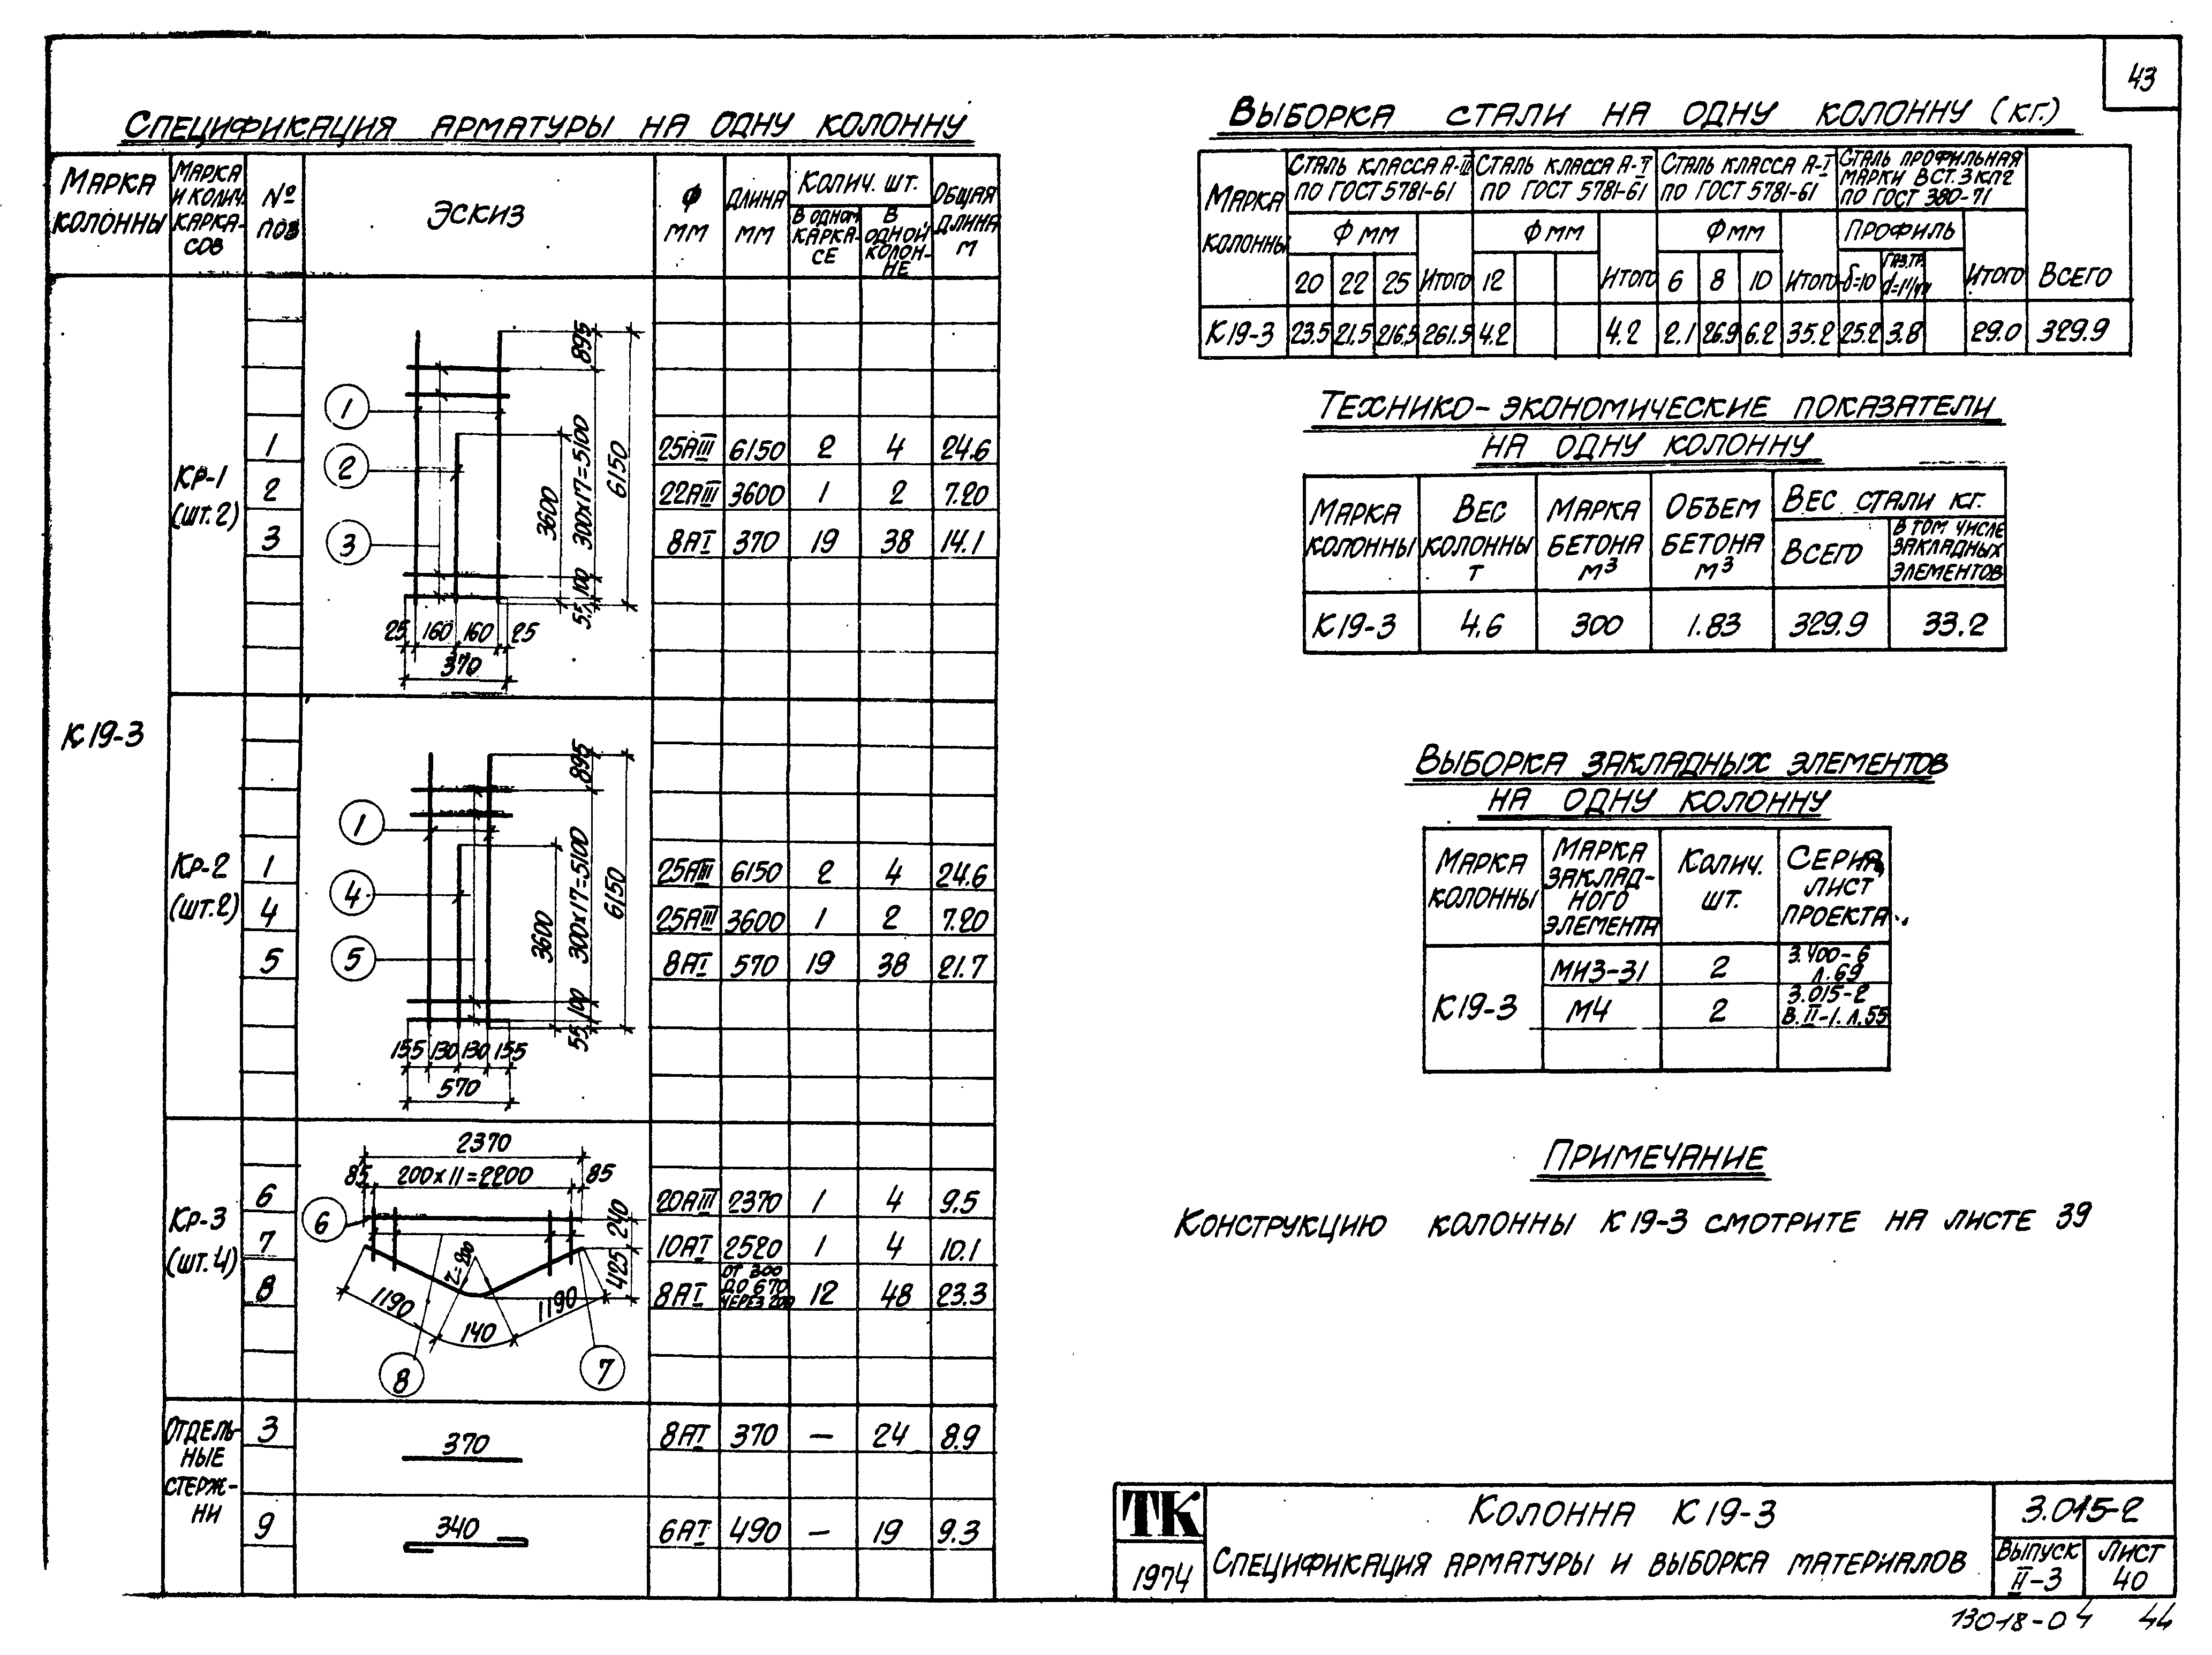 43
СПЕЦИФИКАЦИЯ АРМАТУРЫ НА ОДНУ КОЛОННУ
МАРКА КОЛОННЫ
МАРКА И КОЛИЧ. КАРКА-СОВ
№ ПОЗ
ЭСКИЗ
Ф ММ
ДЛИНА ММ
КОЛИЧ. ШТ.
В ОДНОМ КАРКА-СЕ
В ОДНОЙ КОЛОН-НЕ
ОБЩАЯ ДЛИНА М
К19-3
КР-1 (ШТ.2)
1 25АIII 6150 2 4 24.6
2 22АIII 3600 1 2 7.20
3 8АI 370 19 38 14.1
1
2
3
895
300х17=5100
6150
3600
100
55
25 160 160 25
370
КР-2 (ШТ.2)
1 25АIII 6150 2 4 24.6
4 25АIII 3600 1 2 7.20
5 8АI 570 19 38 21.7
1
4
5
895
300х17=5100
6150
3600
100
55
155 130 130 155
570
КР-3 (ШТ.4)
6 20АIII 2370 1 4 9.5
7 10АI 2520 1 4 10.1
8 8АI ОТ 300 ДО 670 ЧЕРЕЗ 200 12 48 23.3
2370
85 200х11=2200 85
6
240
425
r=200
1190
140
1190
8
7
ОТДЕЛЬ-НЫЕ СТЕРЖ-НИ
3 370 8АI 370 — 24 8.9
9 340 6АI 490 — 19 9.3
ВЫБОРКА СТАЛИ НА ОДНУ КОЛОННУ (КГ.)
МАРКА КОЛОННЫ
СТАЛЬ КЛАССА А-III ПО ГОСТ 5781-61
СТАЛЬ КЛАССА А-I ПО ГОСТ 5781-61
СТАЛЬ КЛАССА А-I ПО ГОСТ 5781-61
СТАЛЬ ПРОФИЛЬНАЯ МАРКИ ВСТ.3 КП2 ПО ГОСТ 380-71
Ф ММ
Ф ММ
Ф ММ
ПРОФИЛЬ
20 22 25 ИТОГО 12 ИТОГО 6 8 10 ИТОГО δ=10 ГАЗ.ТР. ИТОГО ВСЕГО
К19-3 23.5 21.5 216.5 261.5 4.2 4.2 2.1 26.9 6.2 35.2 25.2 3.8 29.0 329.9
ТЕХНИКО-ЭКОНОМИЧЕСКИЕ ПОКАЗАТЕЛИ
НА ОДНУ КОЛОННУ
МАРКА КОЛОННЫ
ВЕС КОЛОННЫ Т
МАРКА БЕТОНА М³
ОБЪЕМ БЕТОНА М³
ВЕС СТАЛИ КГ.
ВСЕГО
В ТОМ ЧИСЛЕ ЗАКЛАДНЫХ ЭЛЕМЕНТОВ
К19-3 4.6 300 1.83 329.9 33.2
ВЫБОРКА ЗАКЛАДНЫХ ЭЛЕМЕНТОВ
НА ОДНУ КОЛОННУ
МАРКА КОЛОННЫ
МАРКА ЗАКЛАД-НОГО ЭЛЕМЕНТА
КОЛИЧ. ШТ.
СЕРИЯ, ЛИСТ ПРОЕКТА
К19-3
МИЗ-31 2 3.400-6 Л.69
М4 2 3.015-2 В.II-1. Л.55
ПРИМЕЧАНИЕ
КОНСТРУКЦИЮ КОЛОННЫ К19-3 СМОТРИТЕ НА ЛИСТЕ 39
ТК
1974
КОЛОННА К19-3
СПЕЦИФИКАЦИЯ АРМАТУРЫ И ВЫБОРКА МАТЕРИАЛОВ
3.015-2
ВЫПУСК II-3
ЛИСТ 40
13018-04 44